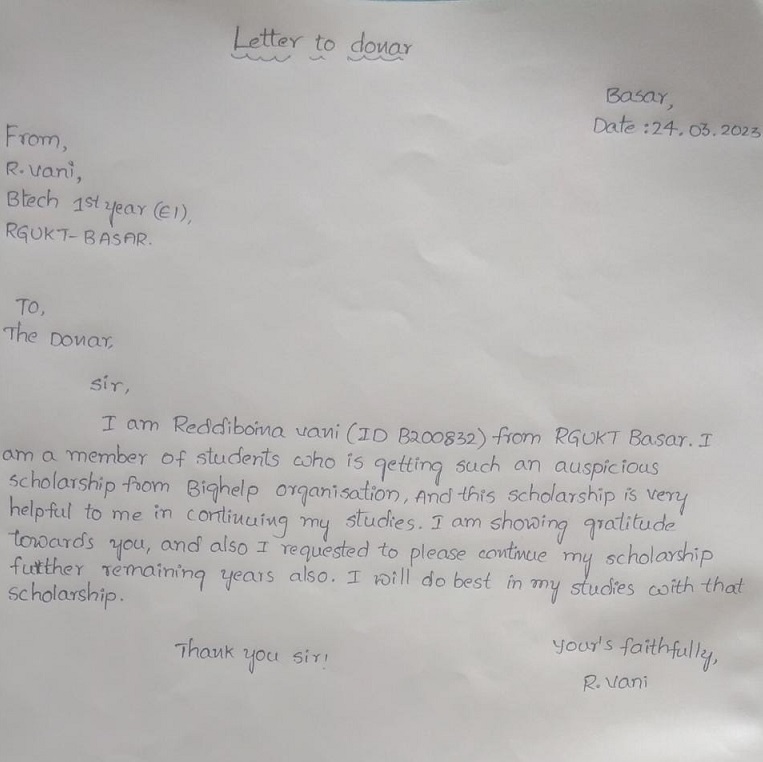 Letter to donar
Basar,
Date : 24. 03. 2023
From,
R. vani,
Btech 1st year (E1),
RGUKT- BASAR.
To,
The Donar,
sir,
I am Reddiboina vani (ID B200832) from RGUKT Basar. I
am a member of students who is getting such an auspicious
scholarship from Bighelp organisation, And this scholarship is very
helpful to me in continuing my studies. I am showing gratitude
towards you, and also I requested to please continue my scholarship
further remaining years also. I will do best in my studies with that
scholarship.
Thank you sir!
your's faithfully,
R. Vani